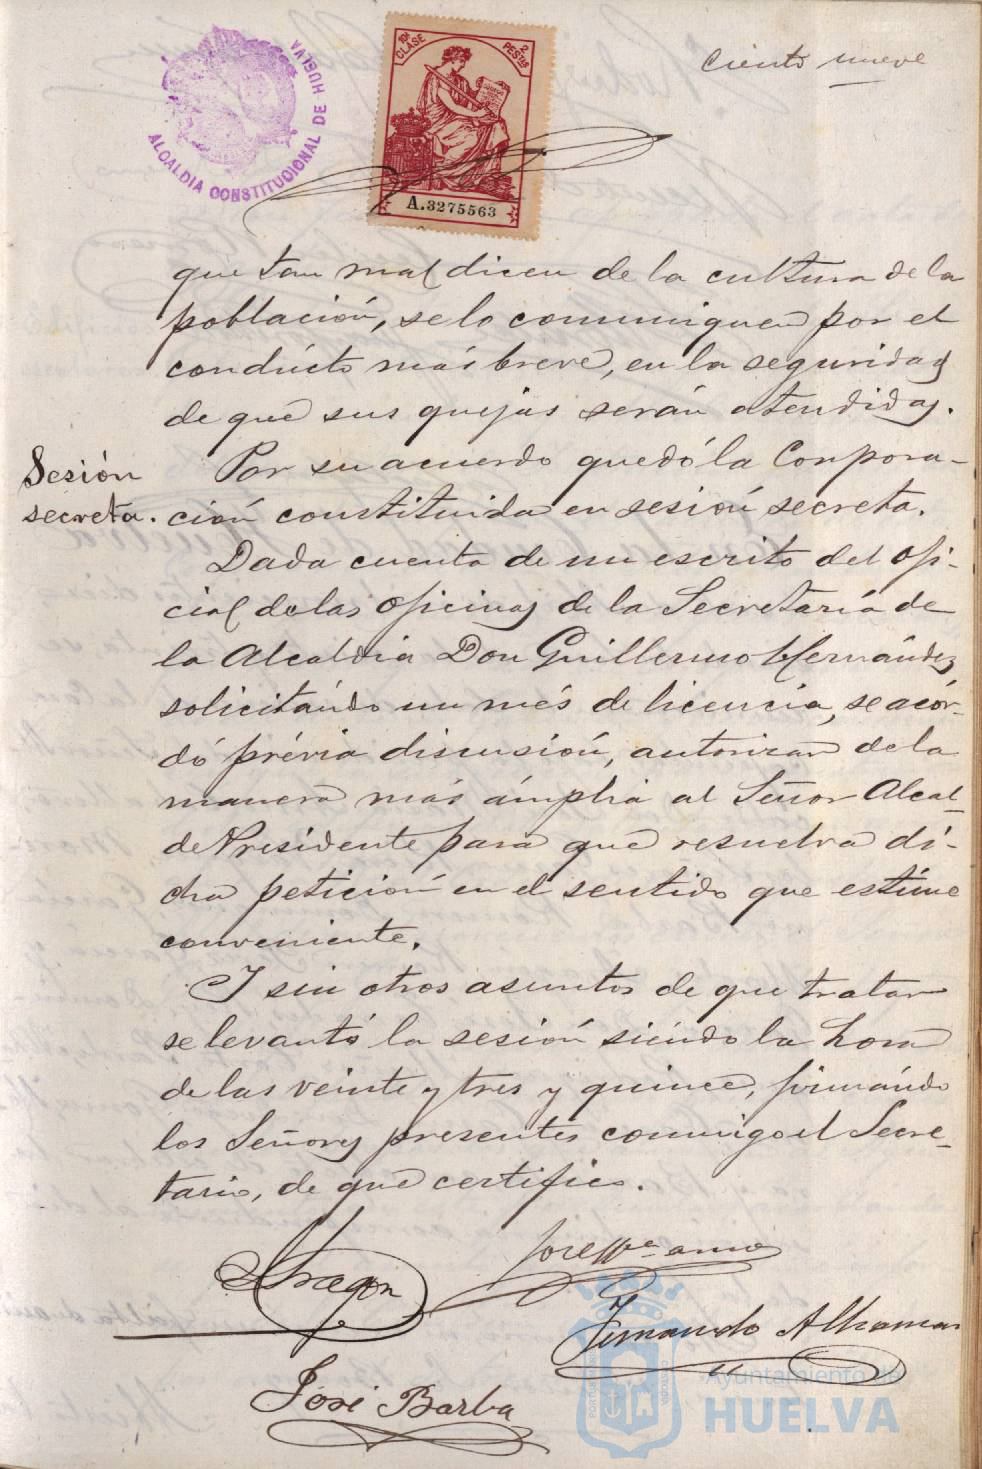 ciento nueve
ALCALDIA CONSTITUCIONAL DE HUELVA
10ª CLASE
2 PESETAS
A.3275563
que tan mal dicen de la cultura de la
población, se lo comuniquen por el
condúcto más breve, en la seguridad
de que sus quejas serán atendidas.
Sesión
secreta.
Por su acuerdo quedó la Corpora-
ción constituida en sesión secreta.
Dada cuenta de un escrito del ofi-
cial de las oficinas de la Secretaría de
la Alcaldia Don Guillermo Hernández
solicitándo un més de licencia, se acór-
dó prévia discusión, autorizar de la
manera más ámplia al Señor Alcal-
de Presidente para que resuelva dí-
cha petición en el sentido que estíme
conveniente.
Y sin otros asuntos de que tratar
se levantó la sesión siéndo la hora
de las veinte y tres y quince, firmándo
los Señores presentes conmigo el Secre-
tario, de que certifico.
Aragón
José
Fernando
José Barba
Ayuntamiento de
HUELVA